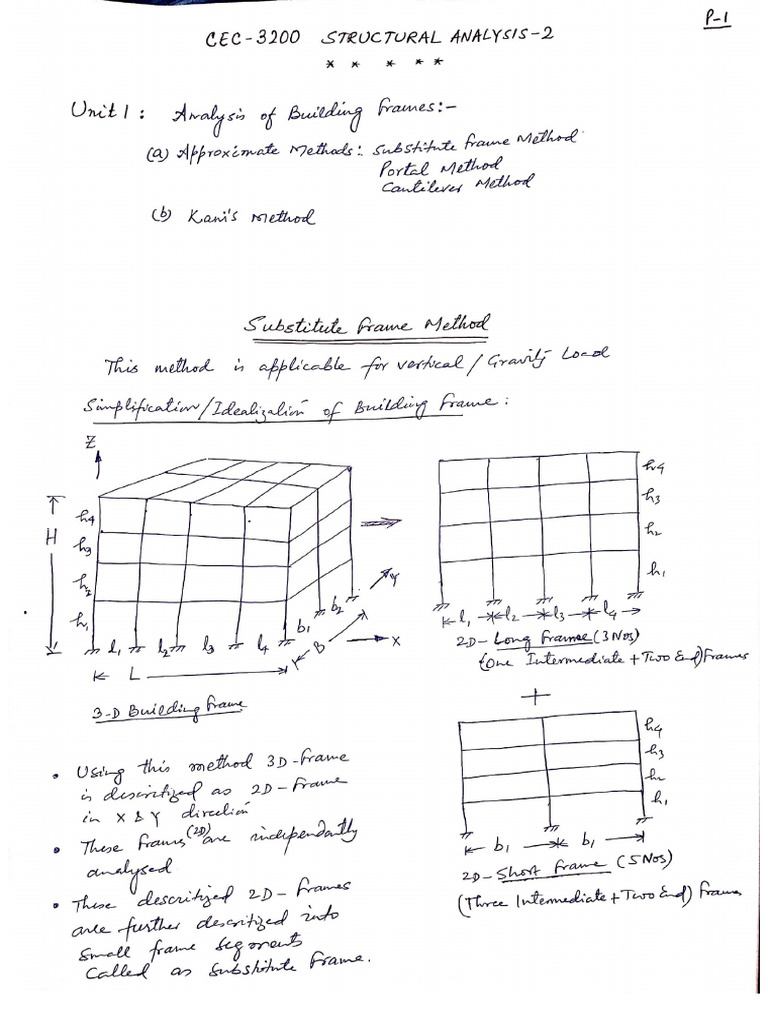 P-1
CEC-3200 STRUCTURAL ANALYSIS-2
* * * * *
Unit 1: Analysis of Building frames:-
(a) Approximate Methods:. Substitute frame Method.
Portal Method
Cantilever Method
(b) Kani's Method
Substitute Frame Method
This method is applicable for vertical/Gravity Load
Simplification/Idealization of Building Frame:
Z
H
h4
h3
h2
h1
l1 l2 l3 l4
b1 b2
L
B
X
Y
3-D Building frame
h4
h3
h2
h1
l1 l2 l3 l4
2D-Long Frame (3Nos)
(One Intermediate + Two End) Frames
+
h4
h3
h2
h1
b1 b1
2D-Short Frame (5Nos)
(Three Intermediate + Two End) Frames
• Using this method 3D-frame
is descritized as 2D-Frame
in X & Y direction
• These frames (2D) are independantly
analysed
• These descritized 2D-Frames
are further descritized into
Small frame segments
Called as Substitute Frame.